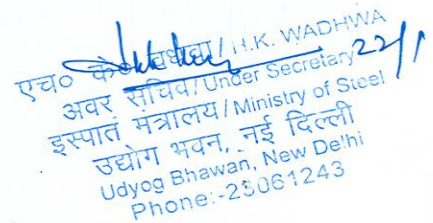 एच० के० वधावा / H.K. WADHWA
अवर सचिव / Under Secretary 22/1
इस्पात मंत्रालय / Ministry of Steel
उद्योग भवन, नई दिल्ली
Udyog Bhawan, New Delhi
Phone:-23061243